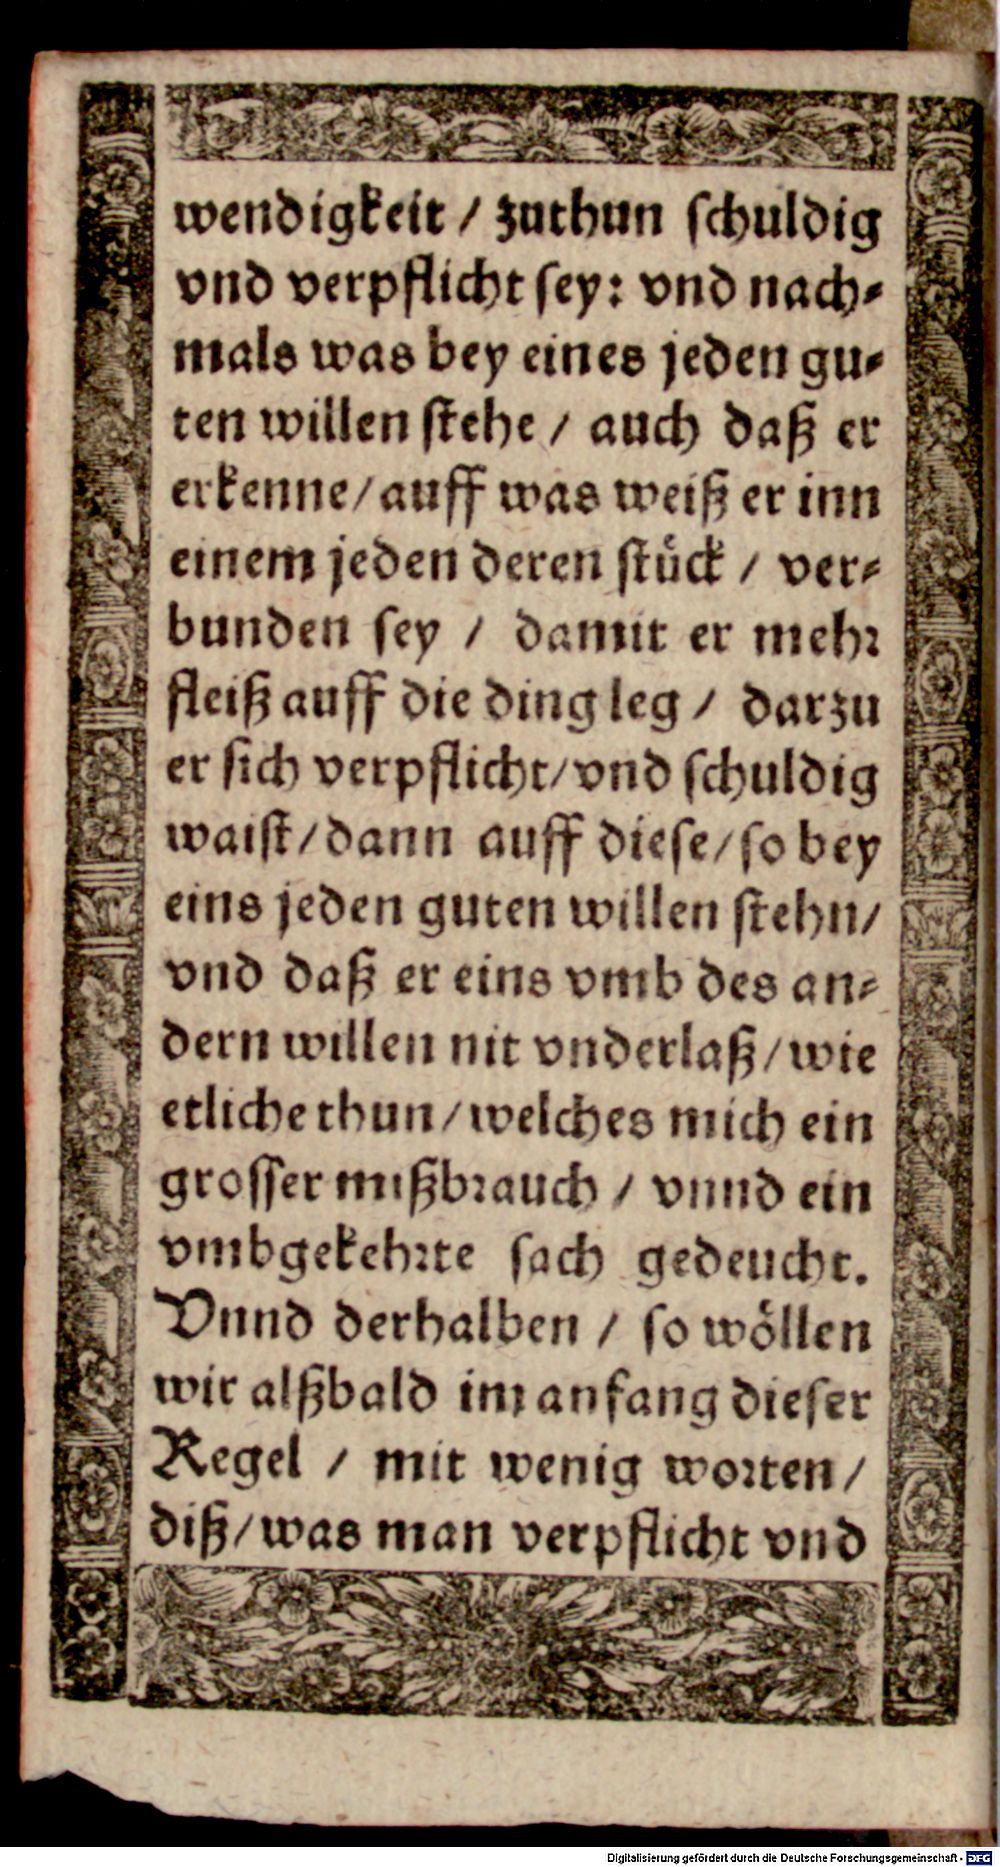 wendigkeit / zuthun ſchuldig
vnd verpflicht ſey: vnd nach⸗
mals was bey eines jeden gu⸗
ten willen ſtehe / auch daß er
erkenne/ auff was weiß er inn
einem jeden deren ſtuͤck / ver⸗
bunden ſey / damit er mehr
fleiß auff die ding leg / darzu
er ſich verpflicht/ vnd ſchuldig
waiſt/ dann auff dieſe/ ſo bey
eins jeden guten willen ſtehn/
vnd daß er eins vmb des an⸗
dern willen nit vnderlaß/ wie
etliche thun/ welches mich ein
groſſer mißbrauch / vnnd ein
vmbgekehrte ſach gedeucht.
Vnnd derhalben / ſo woͤllen
wir alßbald im anfang dieſer
Regel / mit wenig worten/
diß/ was man verpflicht vnd
Digitalisierung gefördert durch die Deutsche Forschungsgemeinschaft - DFG